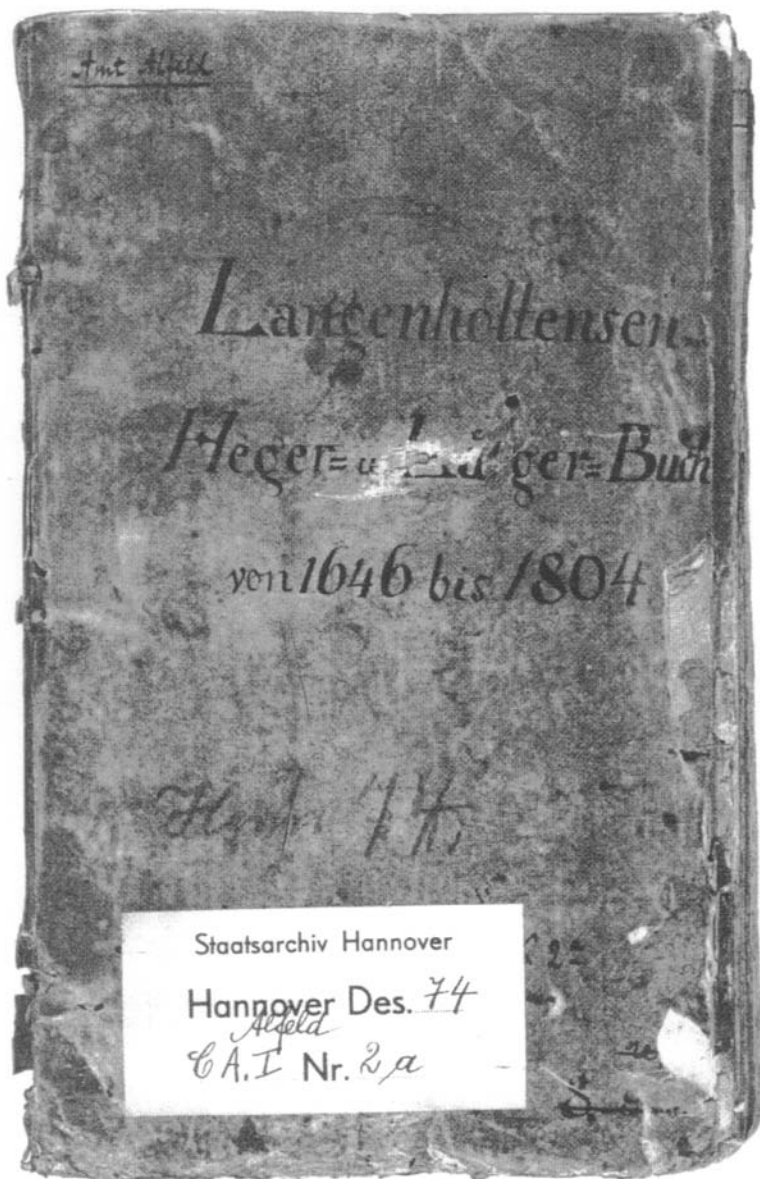 Amt Alfeld
Langenholtensen
Heger= u. ger=Buch
von 1646 bis 1804
Staatsarchiv Hannover
Hannover Des. 74
Alfeld
CA.I Nr. 2 a